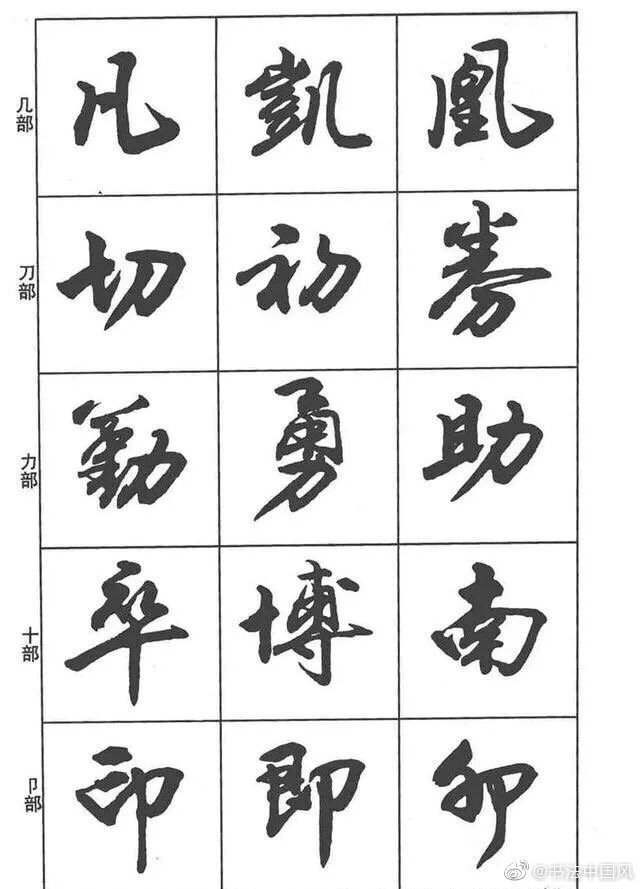 几部 凡 凱 凰
刀部 切 初 券
力部 勤 勇 助
十部 卒 博 南
卩部 印 即 卯
@书法中国风